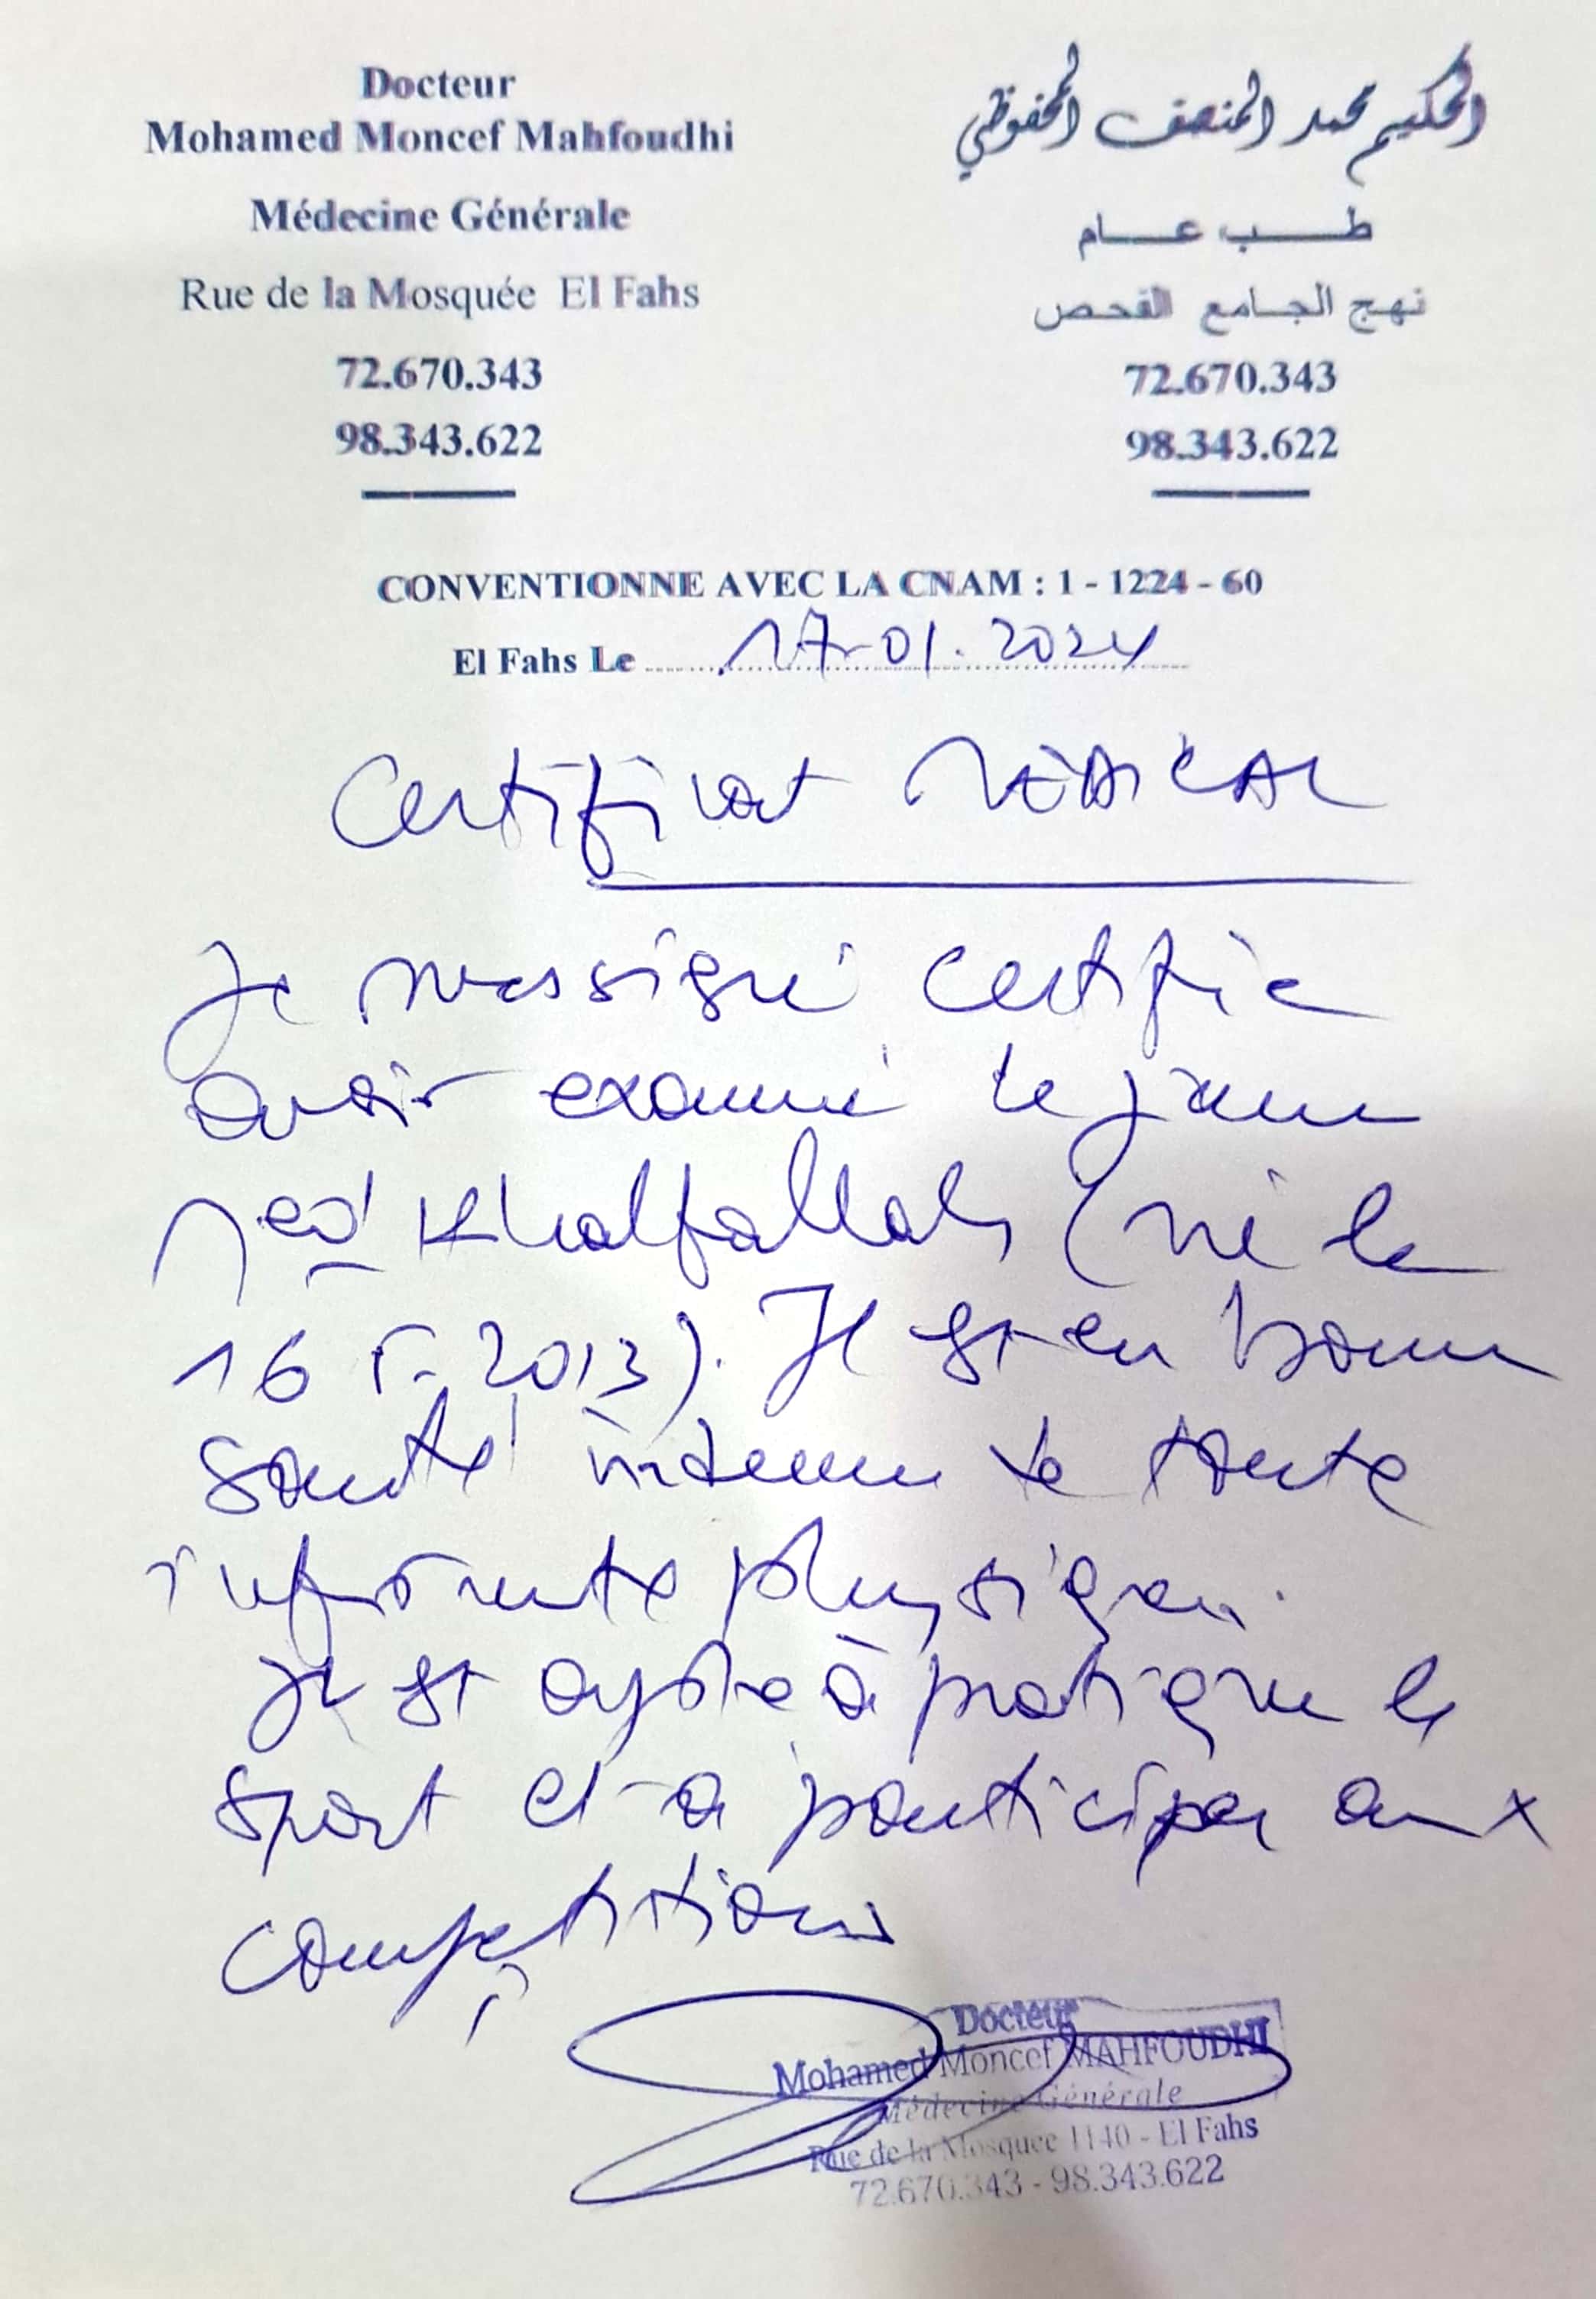 Docteur
Mohamed Moncef Mahfoudhi
Médecine Générale
Rue de la Mosquée El Fahs
72.670.343
98.343.622
الحكيم محمد المنصف المحفوظي
طب عام
نهج الجامع الفحص
72.670.343
98.343.622
CONVENTIONNE AVEC LA CNAM : 1 - 1224 - 60
El Fahs Le 17-01.2024
Certificat MÉDICAL
Je soussigné certifie
avoir examiné le jeune
Med Khalfallah (né le
16 5-2013). Il est en bonne
santé indemne de toute
infirmité physique.
Il est apte à pratiquer le
sport et à participer aux
compétitions
Docteur
Mohamed Moncef MAHFOUDHI
Médecine Générale
Rue de la Mosquee 1140 - El Fahs
72.670.343 - 98.343.622